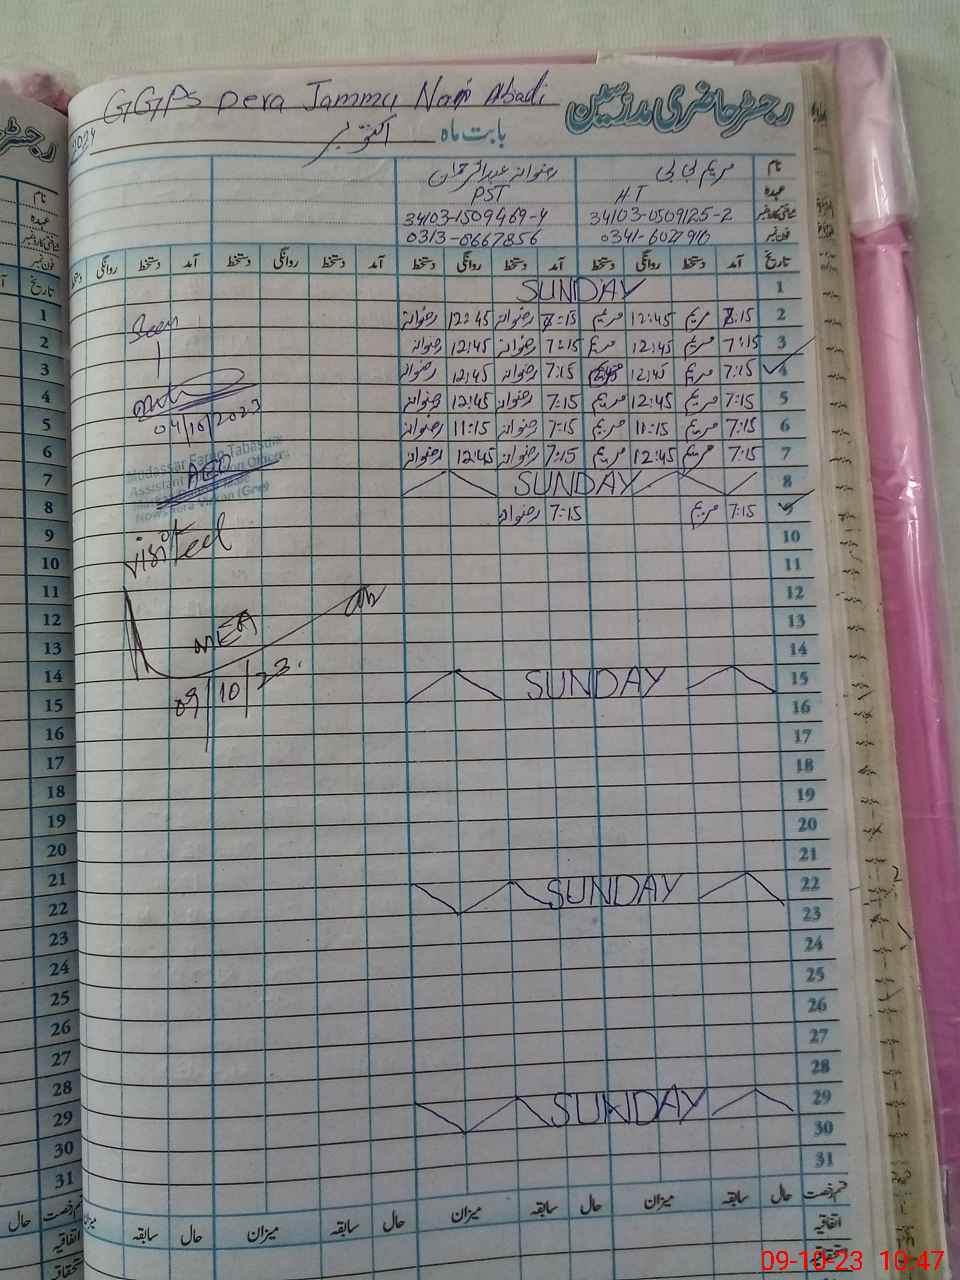 GGPS Dera Jammu Nai Abadi
رجسٹر حاضری مدرسین
بابت ماہ اکتوبر
نام مریم بی بی رضوانہ عبدالرحمان
عہدہ HT PST
شناختی کارڈ نمبر 34103-0509125-2 34103-1509469-4
فون نمبر 0341-6027910 0313-0667856
تاریخ آمد دستخط روانگی دستخط آمد دستخط روانگی دستخط آمد دستخط روانگی دستخط آمد دستخط روانگی
1 SUNDAY
2 7:15 مریم 12:45 مریم 7:15 رضوانہ 12:45 رضوانہ
3 7:15 مریم 12:45 مریم 7:15 رضوانہ 12:45 رضوانہ
4 7:15 مریم 12:45 مریم 7:15 رضوانہ 12:45 رضوانہ
5 7:15 مریم 12:45 مریم 7:15 رضوانہ 12:45 رضوانہ
6 7:15 مریم 11:15 مریم 7:15 رضوانہ 11:15 رضوانہ
7 7:15 مریم 12:45 مریم 7:15 رضوانہ 12:45 رضوانہ
8 SUNDAY
9 7:15 مریم 7:15 رضوانہ
10
11
12
13
14
15 SUNDAY
16
17
18
19
20
21
22 SUNDAY
23
24
25
26
27
28
29 SUNDAY
30
31
قسم رخصت حال سابقہ میزان حال سابقہ میزان حال سابقہ میزان حال سابقہ میزان
اتفاقیہ
استحقاقیہ
Seen
04/10/2023
Mudassar Farooq Tabasum
Assistant Education Officer
AEO
Visited
MEA
09/10/23.
نام
عہدہ
شناختی کارڈ نمبر
فون نمبر
تاریخ
1
2
3
4
5
6
7
8
9
10
11
12
13
14
15
16
17
18
19
20
21
22
23
24
25
26
27
28
29
30
31
قسم رخصت حال
اتفاقیہ
استحقاقیہ
09-10-23 10:47